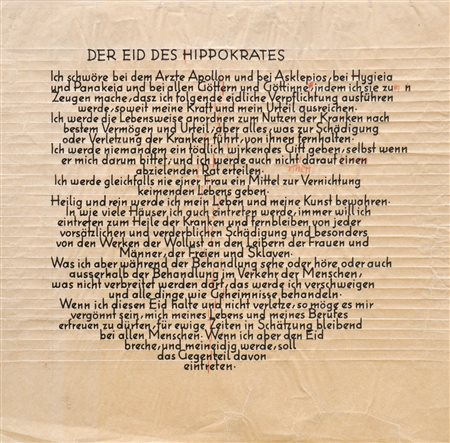 DER EID DES HIPPOKRATES
Ich schwöre bei dem Arzte Apollon und bei Asklepios, bei Hygieia
und Panakeia und bei allen Göttern und Göttinnen, indem ich sie zu
Zeugen mache, dasz ich folgende eidliche Verpflichtung ausführen
werde, soweit meine Kraft und mein Urteil ausreichen.
Ich werde die Lebensweise anordnen zum Nutzen der Kranken nach
bestem Vermögen und Urteil, aber alles, was zur Schädigung
oder Verletzung der Kranken führt, von ihnen fernhalten.
Ich werde niemandem ein tödlich wirkendes Gift geben, selbst wenn
er mich darum bittet, und ich werde auch nicht darauf einen
abzielenden Rat erteilen.
Ich werde gleichfalls nie einer Frau ein Mittel zur Vernichtung
keimenden Lebens geben.
Heilig und rein werde ich mein Leben und meine Kunst bewahren.
In wie viele Häuser ich auch eintreten werde, immer will ich
eintreten zum Heile der Kranken und fernbleiben von jeder
vorsätzlichen und verderblichen Schädigung und besonders
von den Werken der Wollust an den Leibern der Frauen und
Männer, der Freien und Sklaven.
Was ich aber während der Behandlung sehe oder höre oder auch
ausserhalb der Behandlung im Verkehr der Menschen,
was nicht verbreitet werden darf, das werde ich verschweigen
und alle dinge wie Geheimnisse behandeln.
Wenn ich diesen Eid halte und nicht verletze, so möge es mir
vergönnt sein, mich meines Lebens und meines Berufes
erfreuen zu dürfen, für ewige Zeiten in Schätzung bleibend
bei allen Menschen. Wenn ich aber den Eid
breche, und meineidig werde, soll
das Gegenteil davon
eintreten.